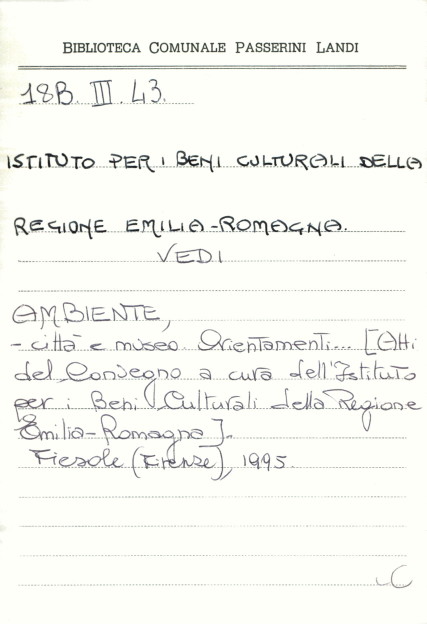 BIBLIOTECA COMUNALE PASSERINI LANDI
18B. III. 43.
ISTITUTO PER I BENI CULTURALI DELLA
REGIONE EMILIA-ROMAGNA.
VEDI
AMBIENTE,
- città e museo. Orientamenti... [Atti
del Convegno a cura dell'Istituto
per i Beni Culturali della Regione
Emilia-Romagna].
Fiesole (Firenze), 1995.